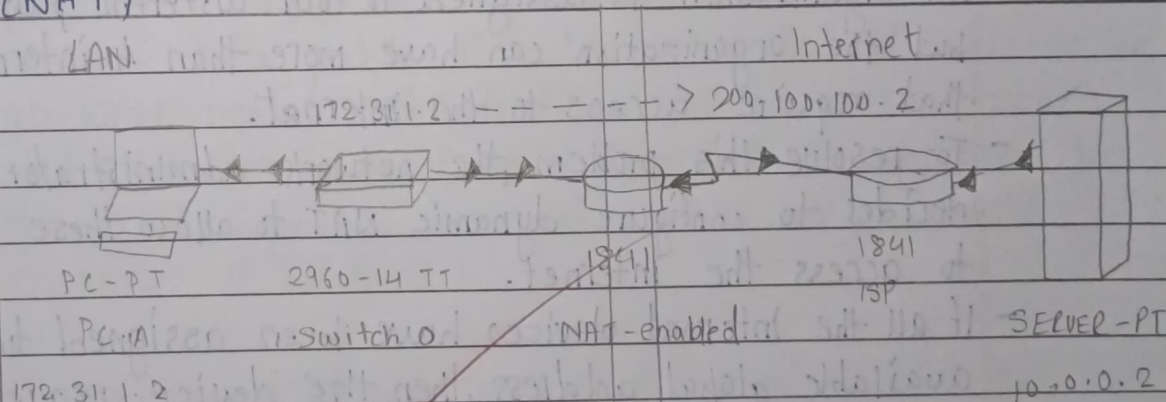 LAN. Internet.
172.31.1.2 - - - - - -> 200.100.100.2
1841 1841
PC-PT 2960-14 TT ISP
PC-A Switch 0 NAT-enabled. SERVER-PT
172.31.1.2 10.0.0.2